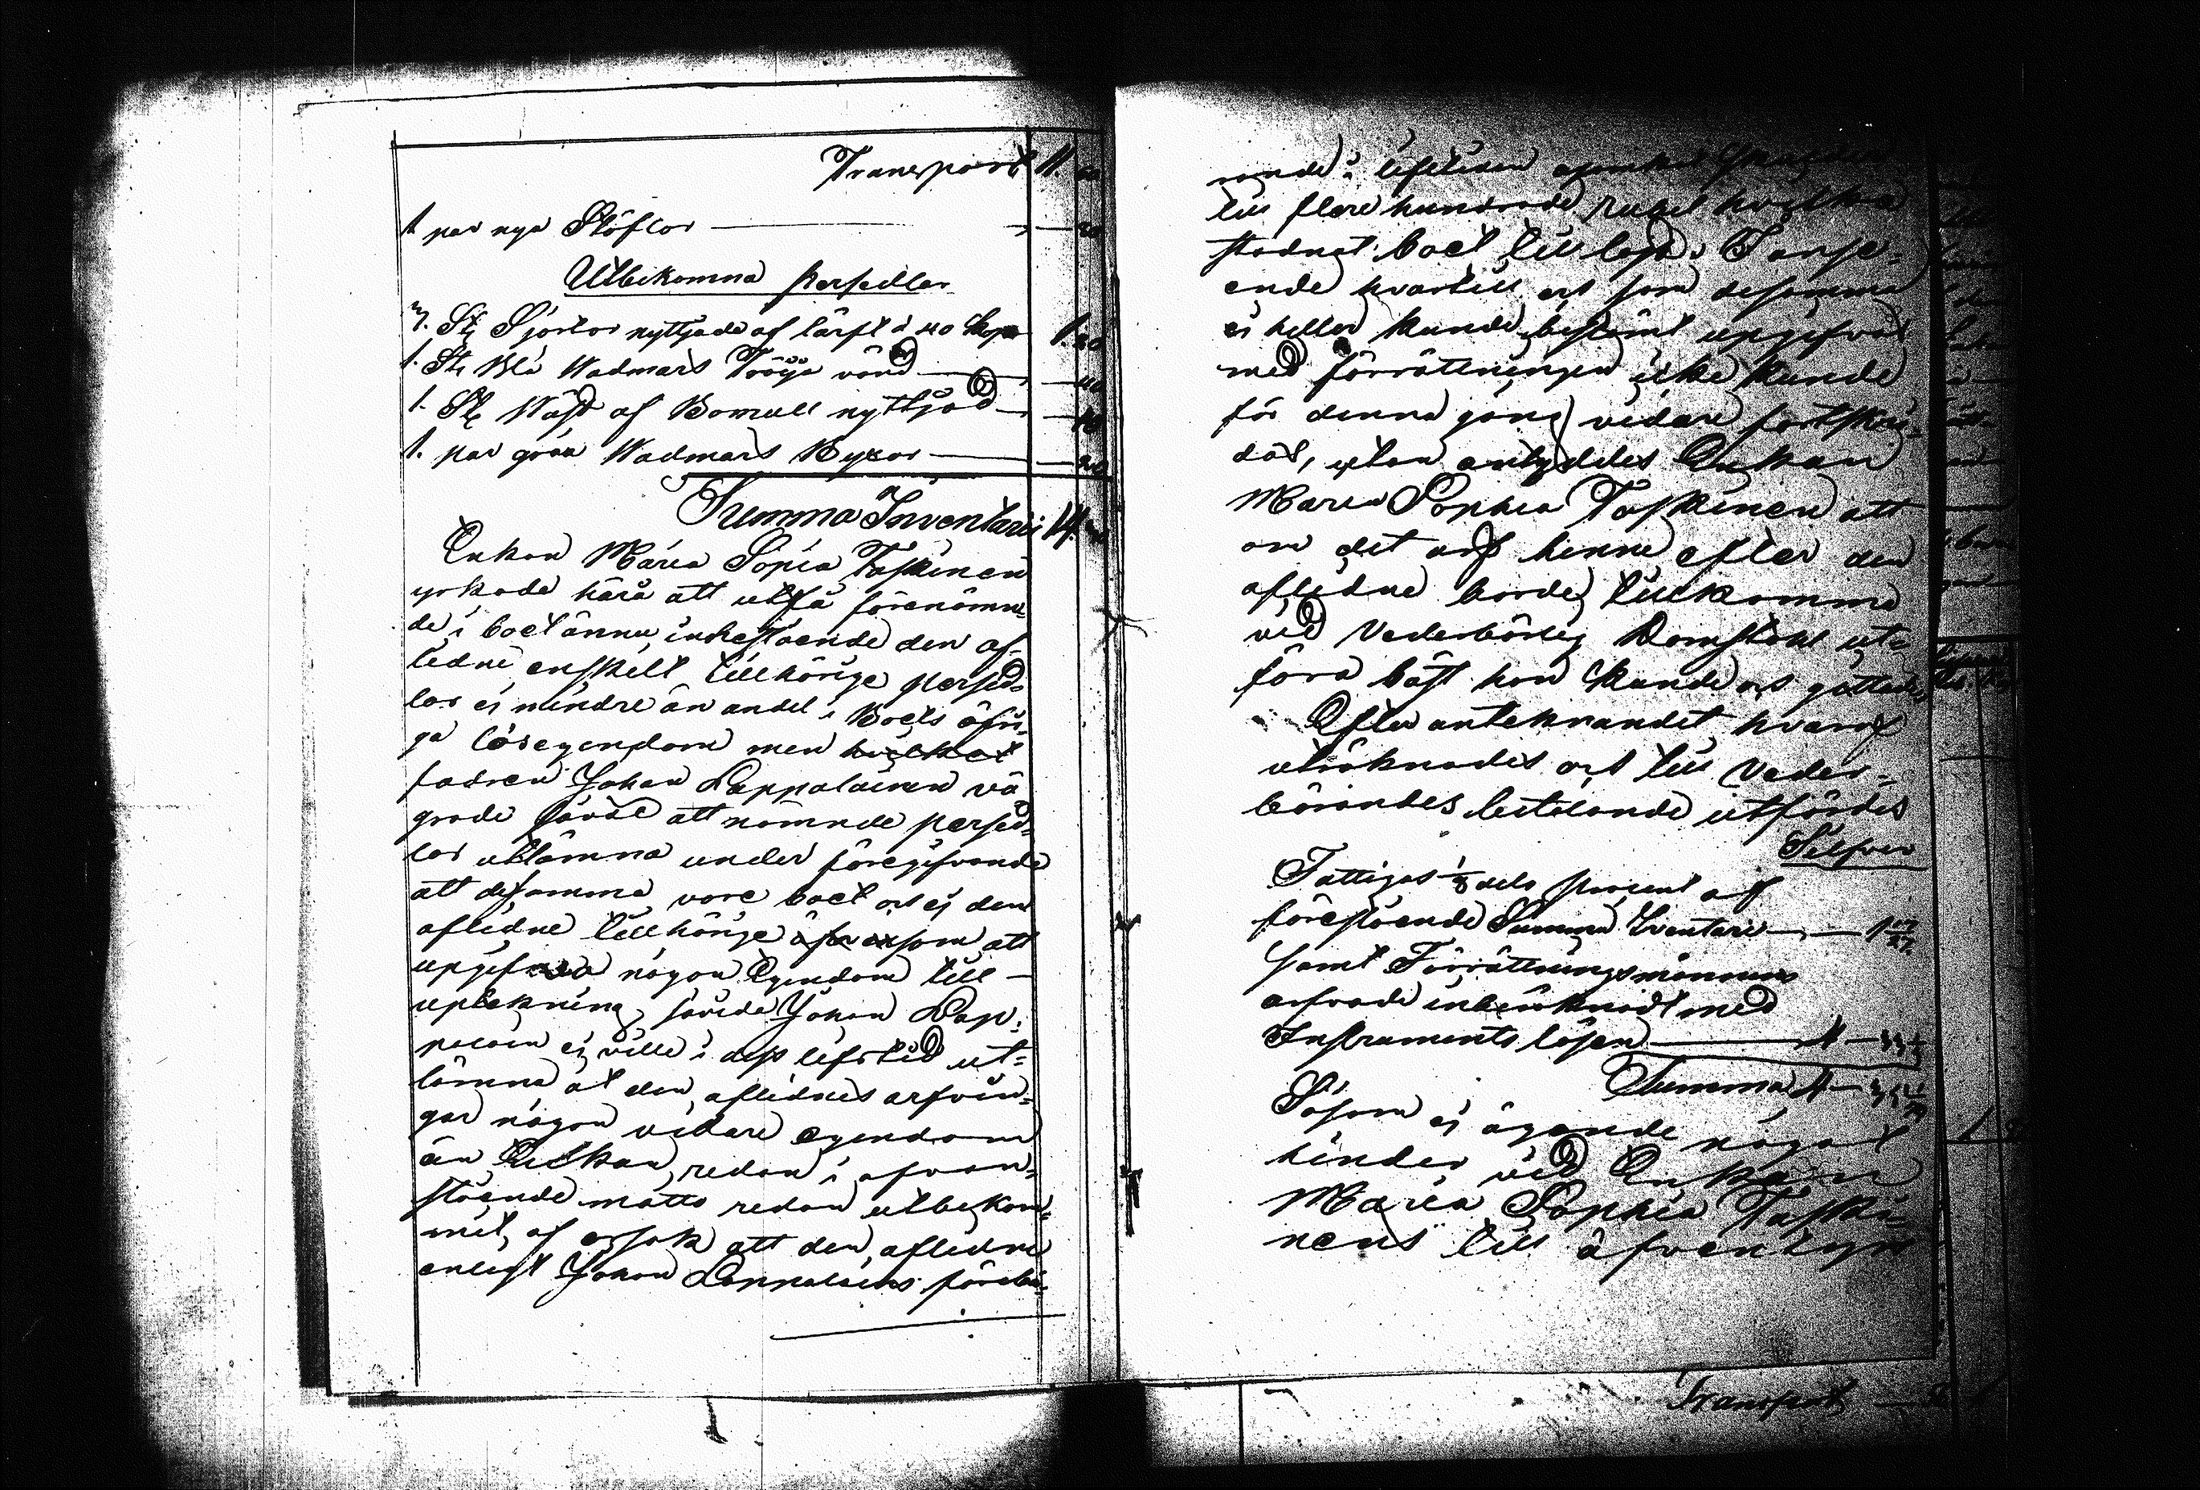 Transport 11. 60
1 par nya Stöflor — 20
Utbekomna Persedlar
3. St. Sjortor nyttjade af lärft á 40 kop 1. 20
1. St. Blå Wadmals Tröija vänd — 40
1. St. Wäst af Bomull nyttjad — 10
1. par gråa Wadmals Byxor
Summa Inventarii 14.
Enkan Maria Sopia Taskinen
yrkade härå att utfå förenämn-
de i boet ännu inhestående den af-
ledne enskilt tillhörige persed-
lar ej mindre än andel i Boets öfri-
ga lösegendom men hvilket
fadren Johan Lappalainen vä
grade såväl att nämnde persed-
lar utlämna under föregifvande
att desamma vore boet och ej den
afledne tillhörige som att
upgifva någon Egendom till
uptekning, såvida Johan Lap-
palain ej ville i dess lifstid ut-
lämna åt den aflednes arfvin-
gar någon vidare egendom
än Enkan redan i ofvan-
stående måtto redan utbekom-
mit, af orsak att den afledne
enligt Johan Lappalains förebä-
rande i lifstiden
till flere hundrade rubel hvilka
stadnat boet till last. I anse-
ende hvartill och som desamma
ej heller kunde bestämt upgifvas
med förrättningen icke kunde
för denna gång vidare fortskri-
das, utan antyddes Enkan
Maria Sophia Taskinen att
om det arf henne efter den
afledne borde tillkomma
vid Vederbörlig Domstol ut-
föra bäst hon kunde och gittade,
Efter anteknandet hvaraf
uträknades och till Veder-
börandes betalande utfördes
Silfver
Fattigas 1/8 dels procent af
förestående Summa Iventarii — 1
samt Förrättningsmannens
arfvode inberäknadt med
Instruments lösen — 4
Summa 4
Såsom ej ägande något
hinder vid Enkan
Maria Sophia Taski-
nens till äfventyrs
Transport